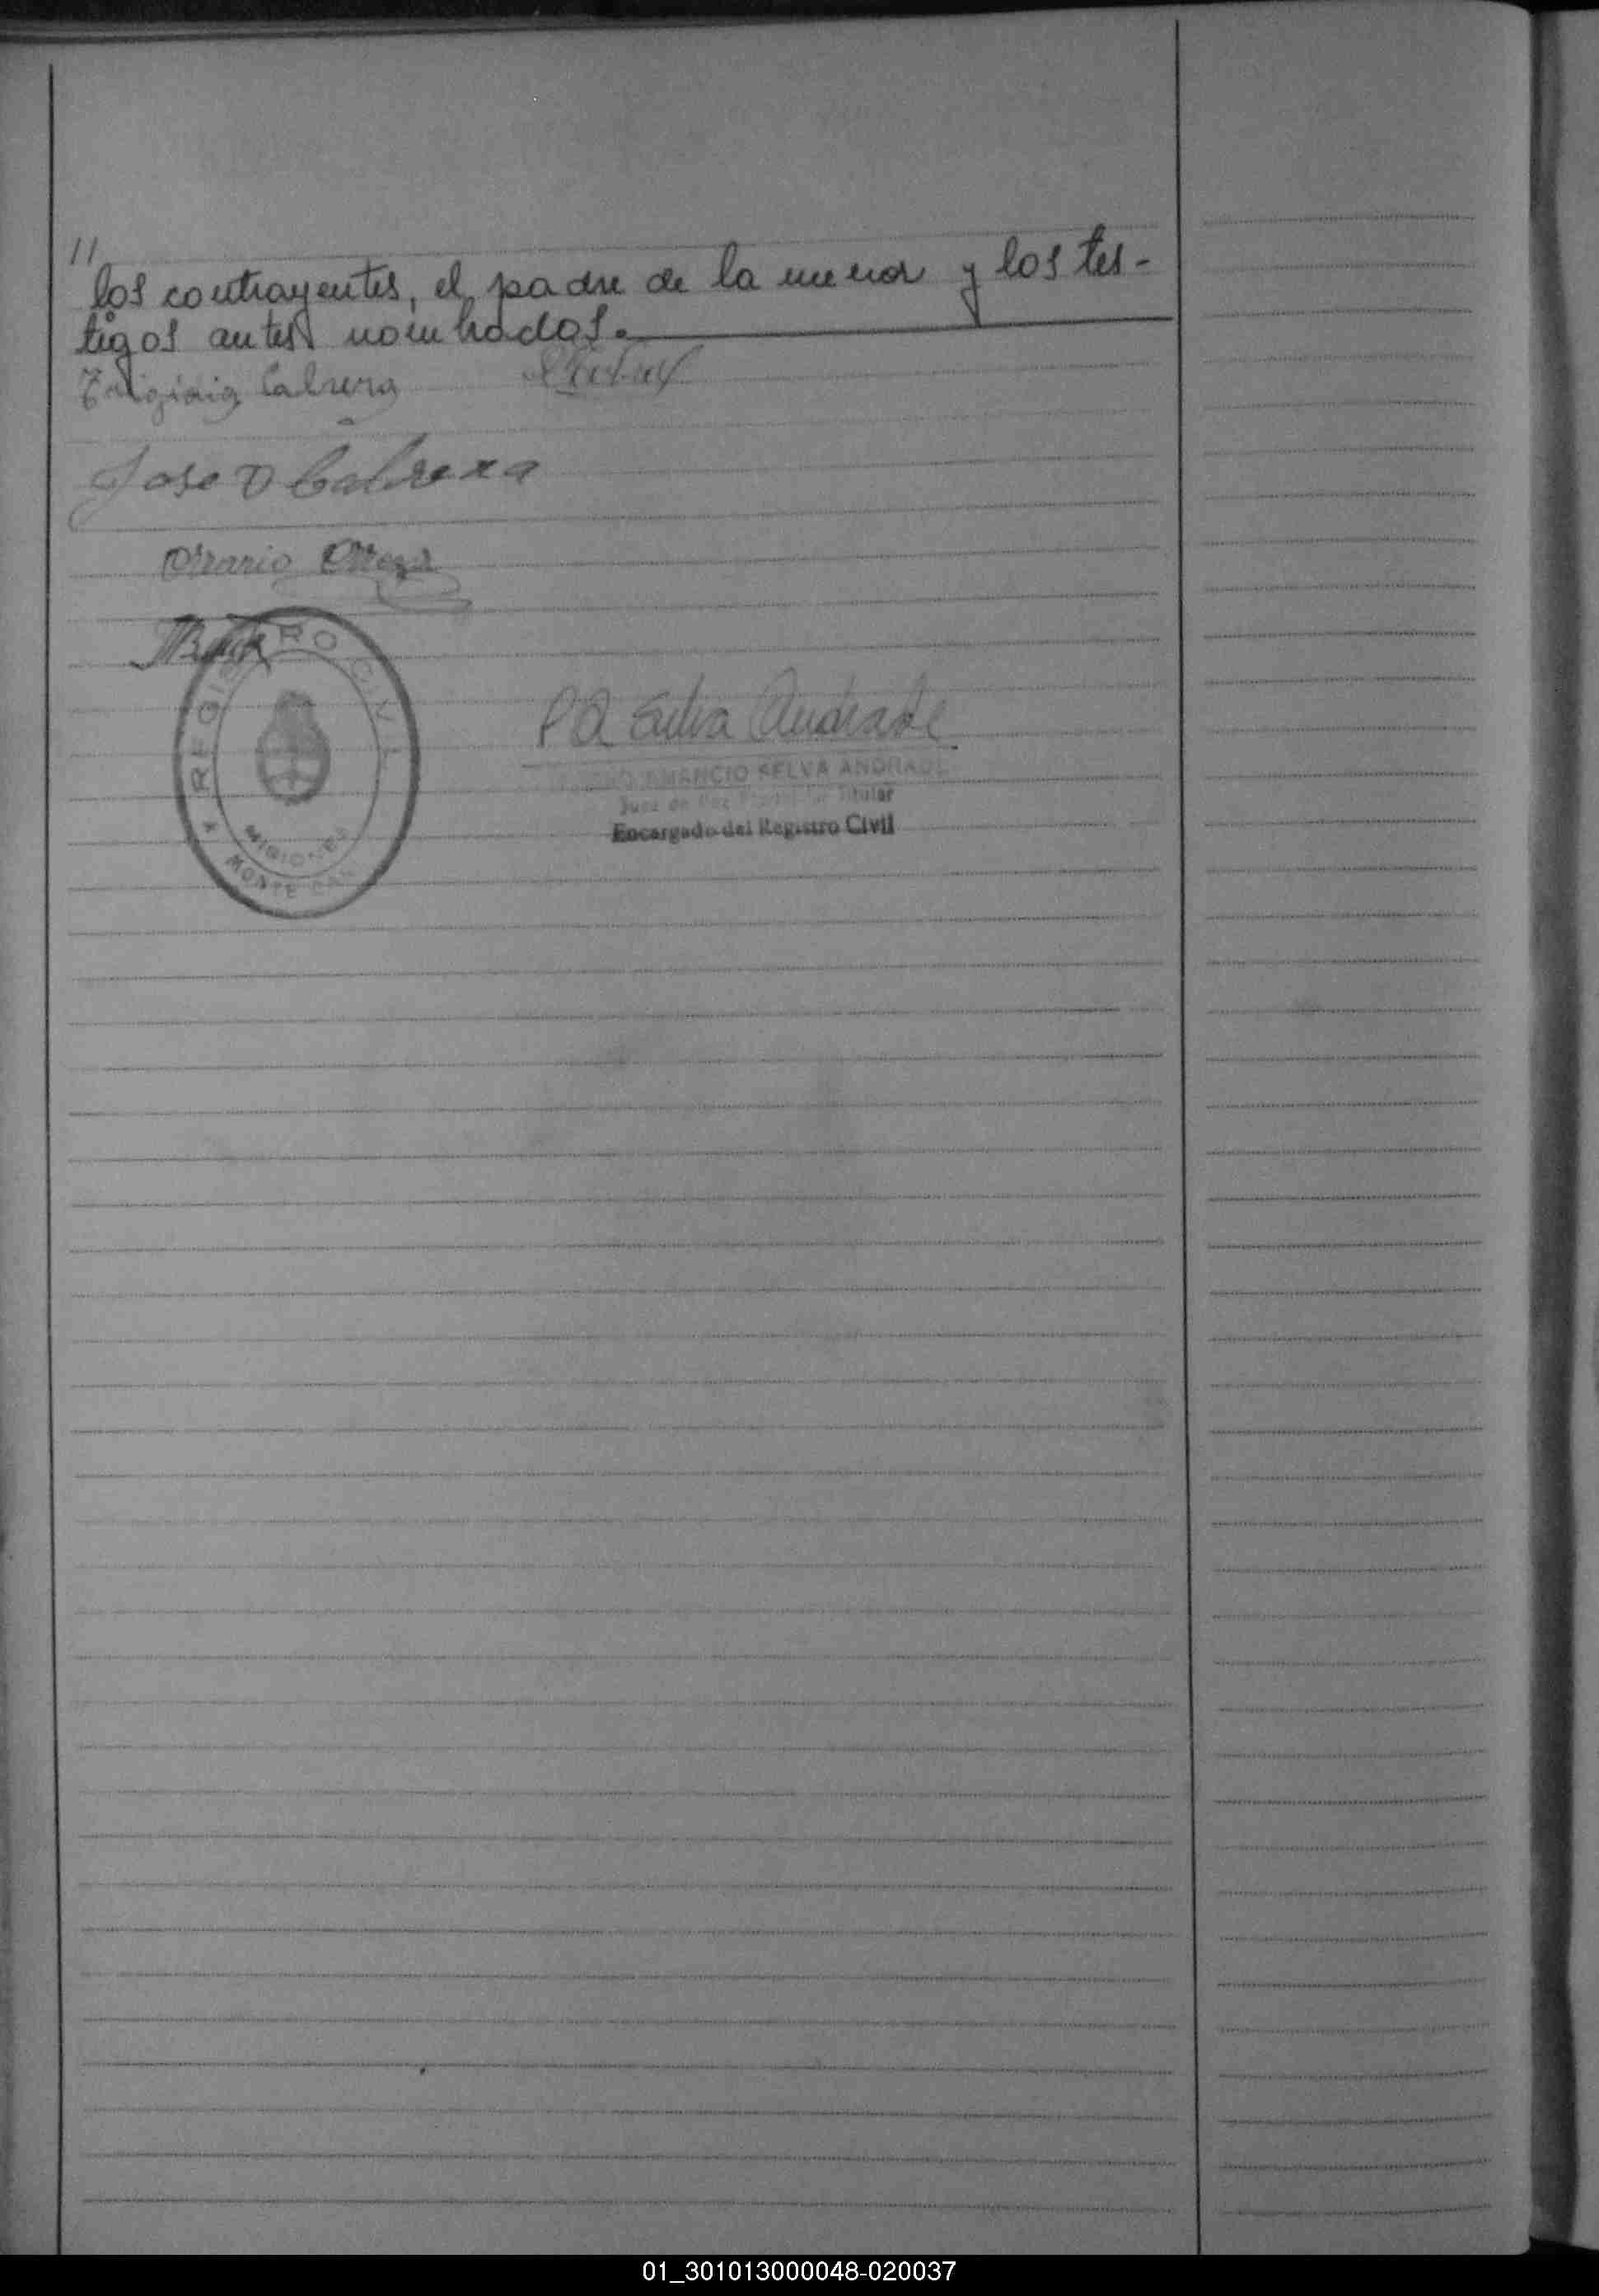 //
los contrayentes, el padre de la menor y los tes-
tigos antes nombrados.
Cabrera
Jose D Cabrera
Mario Meza
REGISTRO CIVIL
MISIONES
MONTE
P A Selva Andrade
AMANCIO SELVA ANDRADE
Juez de Paz Titular
Encargado del Registro Civil
01_301013000048-020037